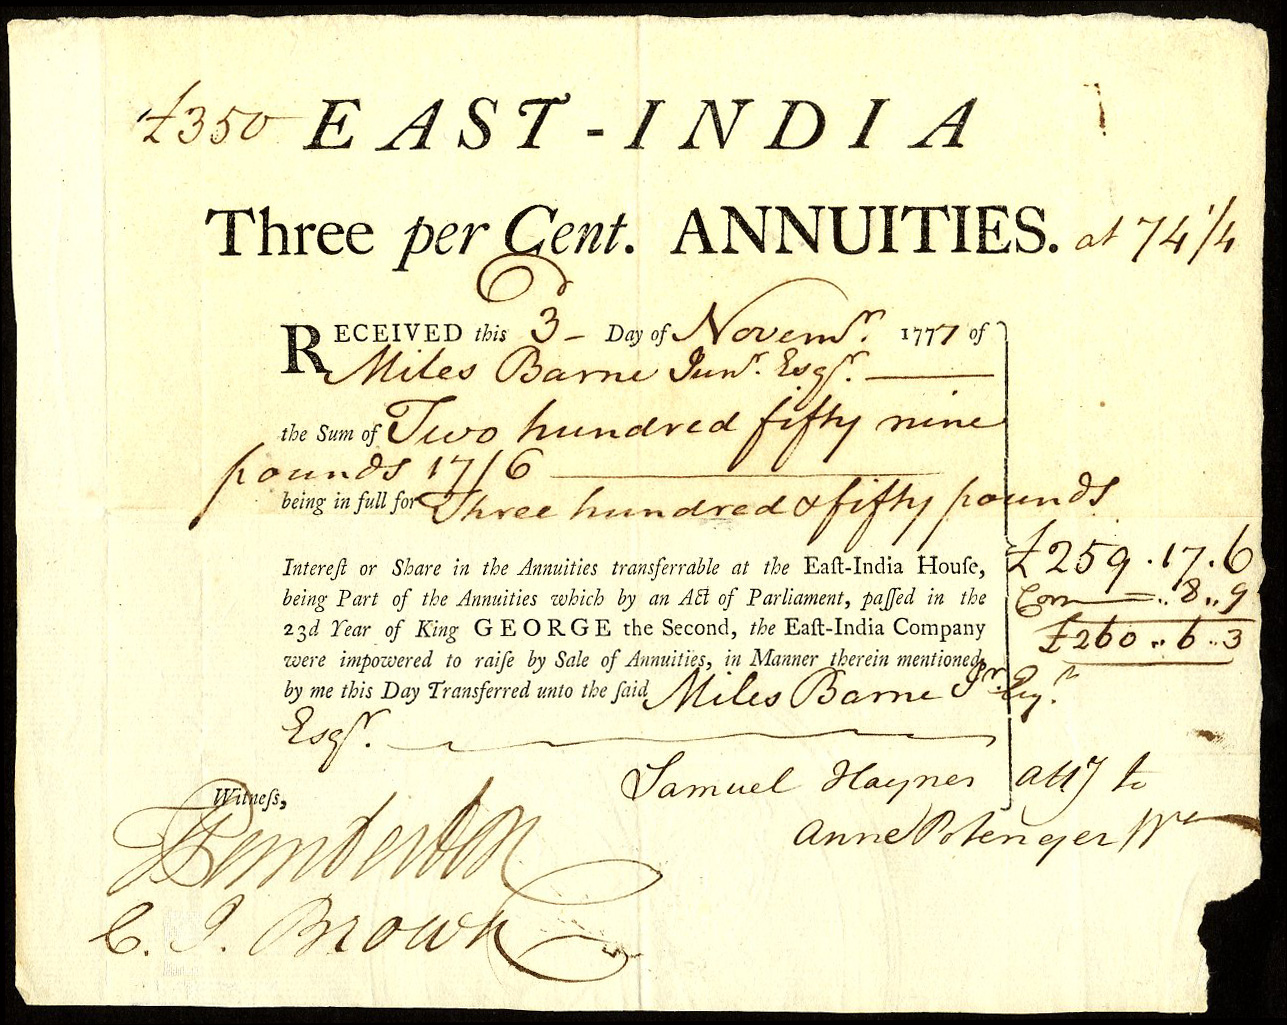 £350 EAST-INDIA
Three per Cent. ANNUITIES. at 74 1/4
RECEIVED this 3 Day of Novemr. 1777 of
Miles Barne Junr. Esqr.
the Sum of Two hundred fifty nine
pounds 17/6
being in full for Three hundred & fifty pounds
Intereſt or Share in the Annuities transferrable at the Eaſt-India Houſe,
being Part of the Annuities which by an Act of Parliament, paſſed in the
23d Year of King GEORGE the Second, the Eaſt-India Company
were impowered to raiſe by Sale of Annuities, in Manner therein mentioned,
by me this Day Transferred unto the ſaid Miles Barne Jr. Esqr.
Esqr.
£259.17.6
Com 8 9
£260 6 3
Samuel Haynes atty to
Anne Potenger Wr
Witneſs,
Pemberton
C. J. Brown